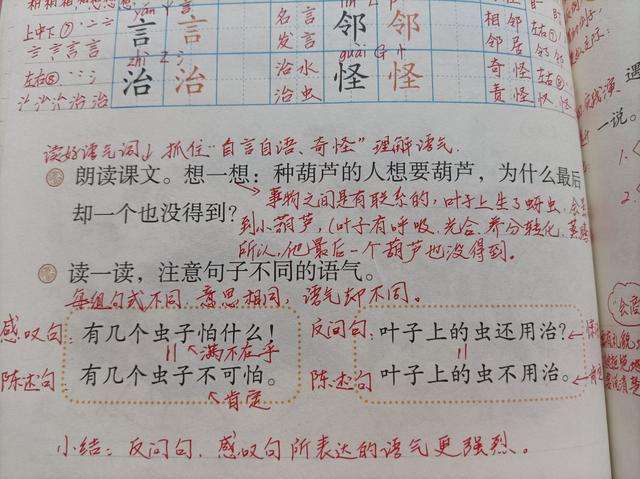 上中下⑦
言 言
名言
发言
邻 邻
相邻
邻居
左右
zhì
guài
左右⑧
治 治
治水
治虫
怪 怪
奇怪
责怪
读好语气词，抓住"自言自语、奇怪"理解语气.
朗读课文。想一想：种葫芦的人想要葫芦，为什么最后
却一个也没得到？
事物之间是有联系的，叶子上生了蚜虫，会
到小葫芦，(叶子有呼吸、光合、养分转化、蒸
所以，他最后一个葫芦也没得到.
一说。
读一读，注意句子不同的语气。
每组句式不同，意思相同，语气却不同。
感叹句 有几个虫子怕什么！
满不在乎
陈述句 有几个虫子不可怕。
肯定
反问句： 叶子上的虫还用治？
陈述句 叶子上的虫不用治。
小结：反问句，感叹句所表达的语气更强烈。